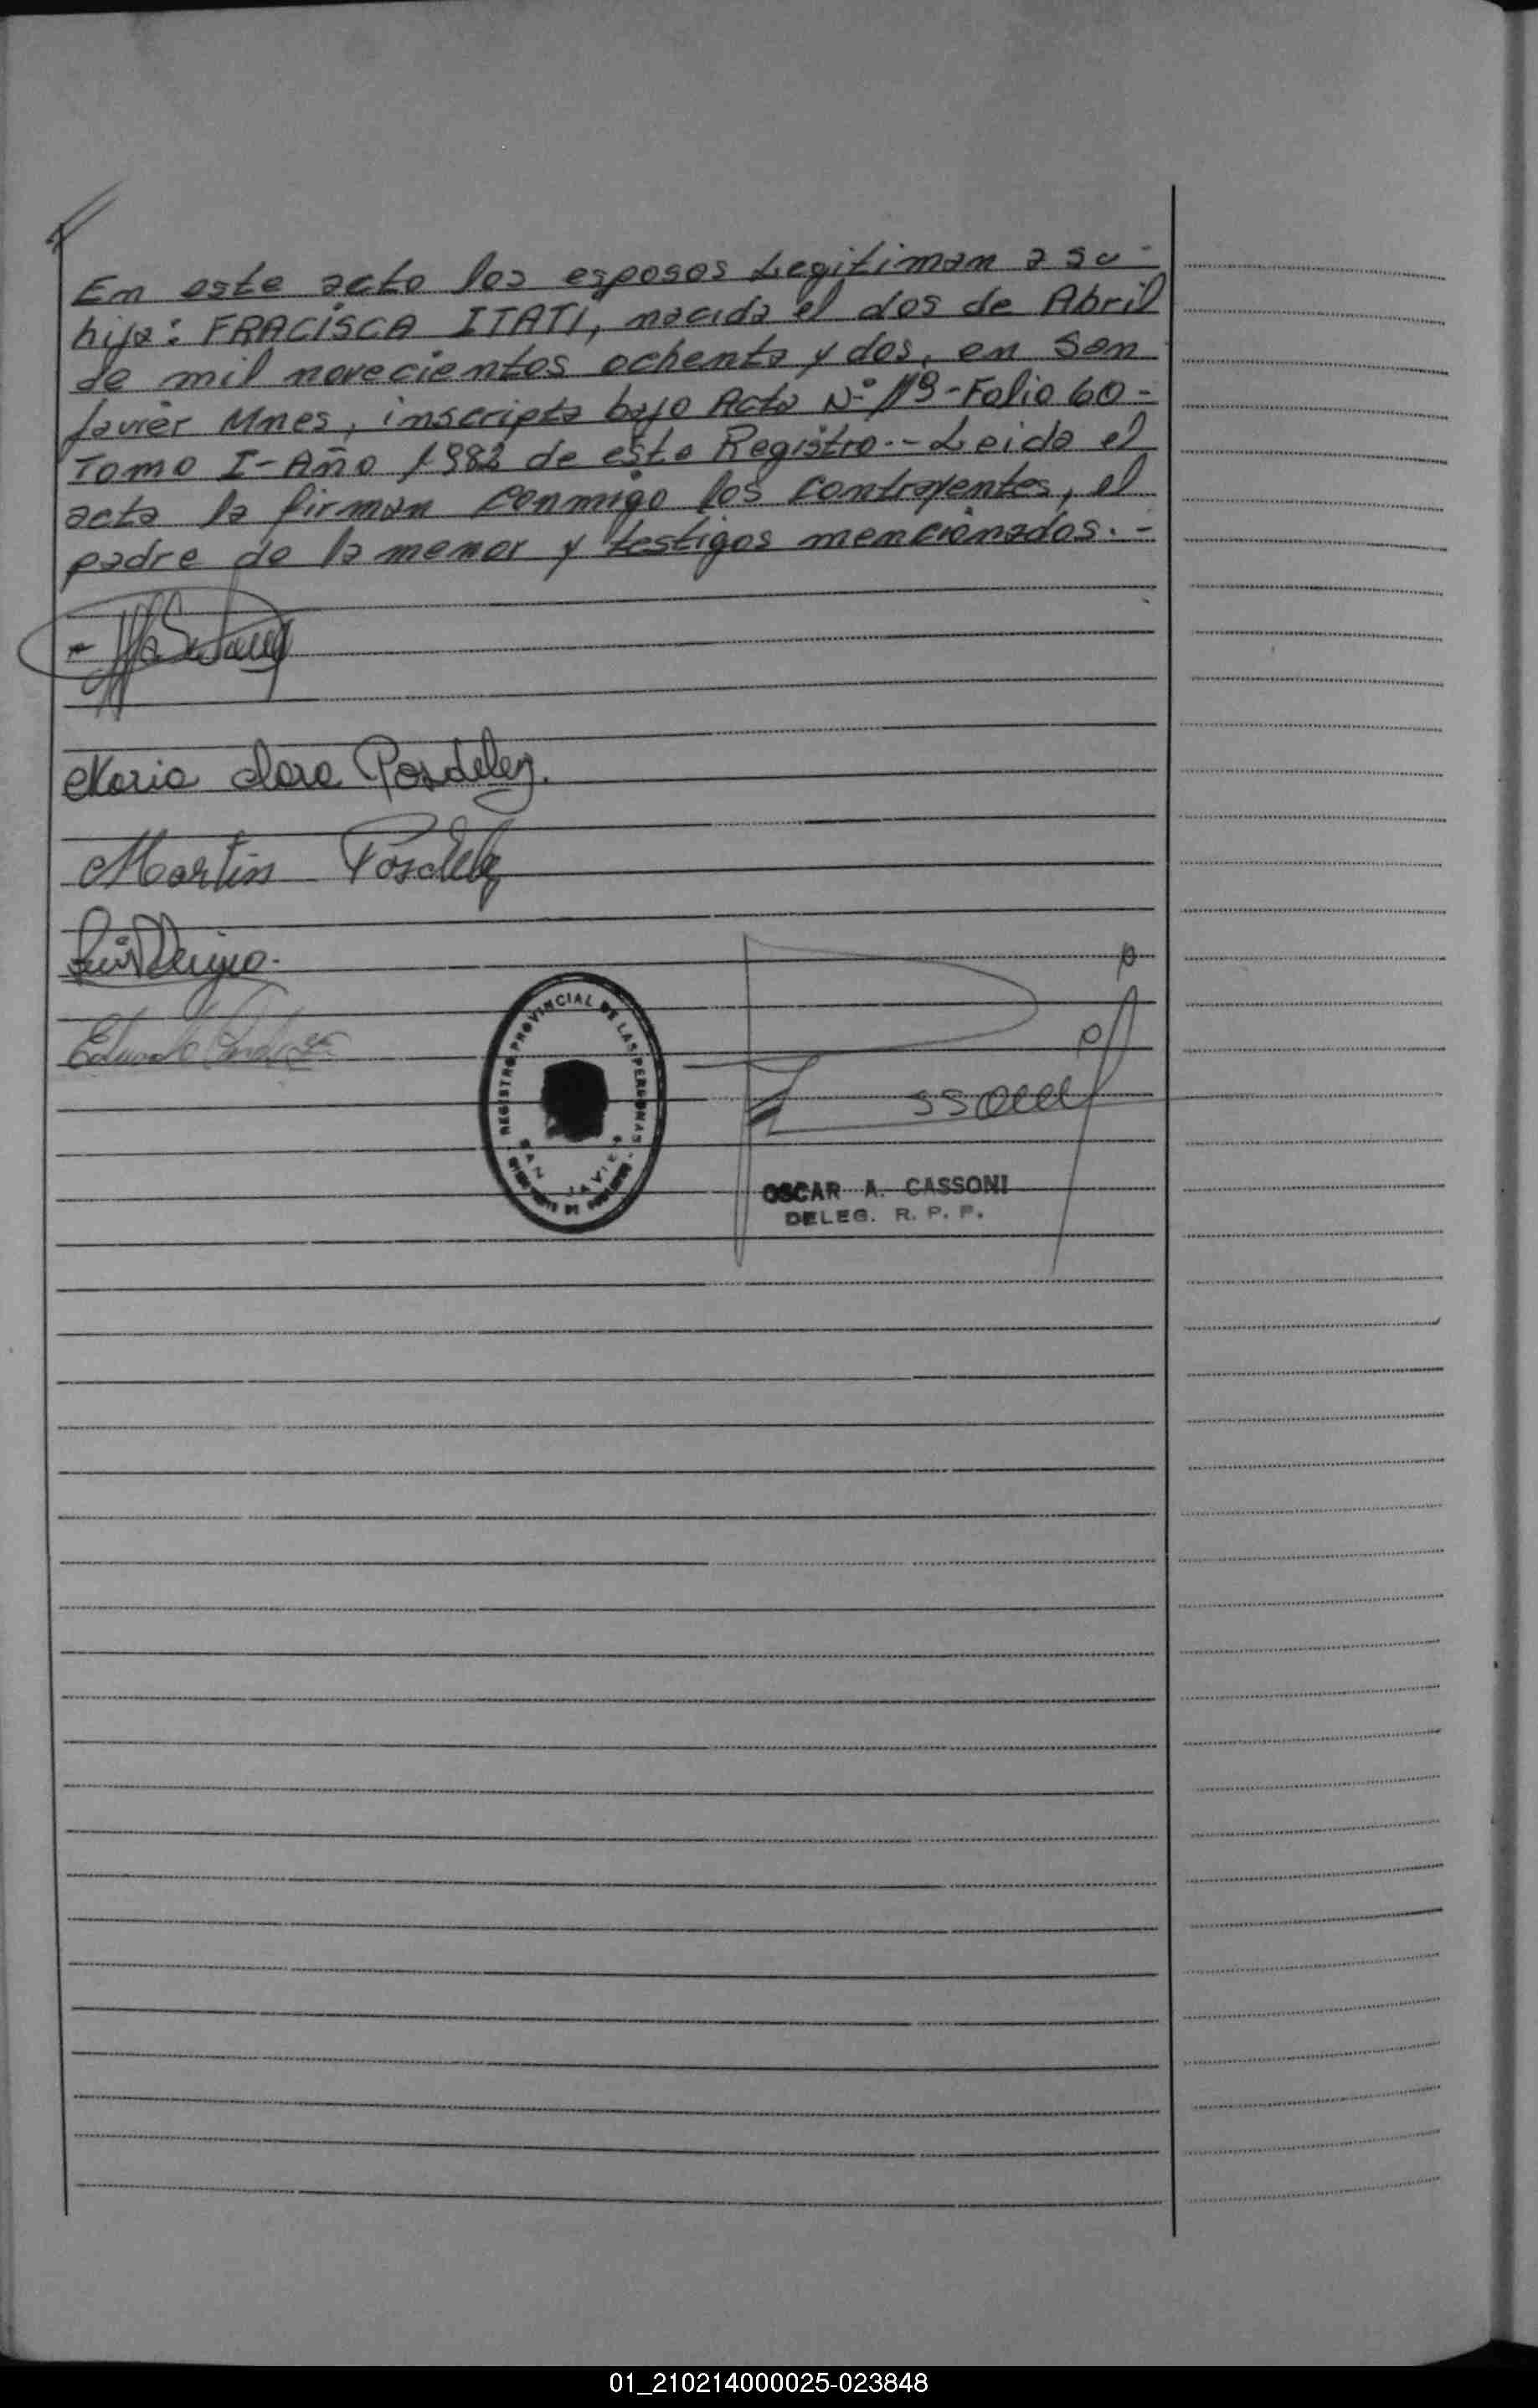 En este acto los esposos Legitiman a su -
hija: FRACISCA ITATI, nacida el dos de Abril
de mil novecientos ochenta y dos, en San
Javier Mnes, inscripta bajo Acta Nº 119 - Folio 60 -
Tomo I - Año 1982 de este Registro. - Leida el
acta la firman conmigo los contrayentes, el
padre de la menor y testigos mencionados. -
Maria Clara Posdeley.
Martin Posdeley
REGISTRO PROVINCIAL DE LAS PERSONAS
SAN JAVIER
OSCAR A. CASSONI
DELEG. R. P. P.
01_210214000025-023848